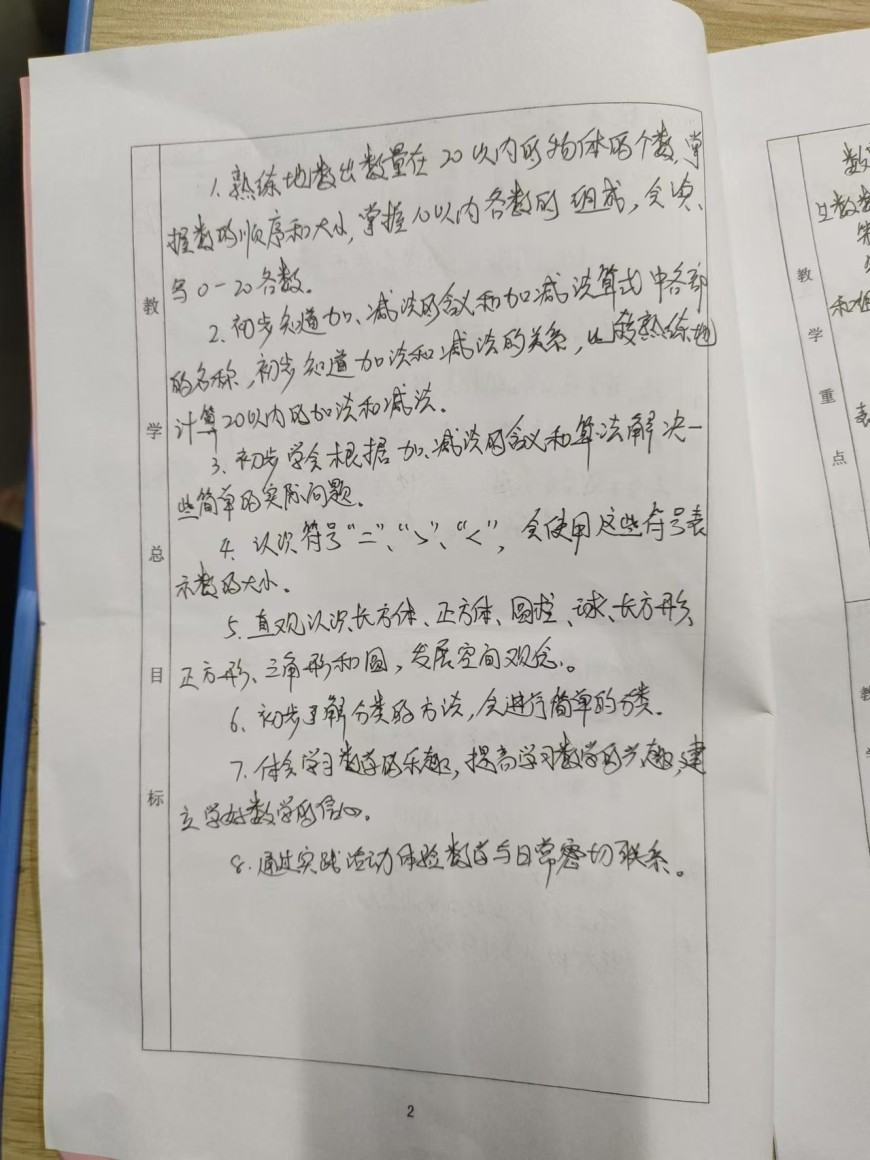 教学总目标
1. 熟练地数出数量在20以内的物体的个数,掌
握数的顺序和大小,掌握10以内各数的组成,会读、
写0-20各数。
2. 初步知道加、减法的含义和加减法算式中各部
的名称,初步知道加法和减法的关系,比较熟练地
计算20以内的加法和减法。
3. 初步学会根据加、减法的含义和算法解决一
些简单的实际问题。
4. 认识符号“=”、“>”、“<”,会使用这些符号表
示数的大小。
5. 直观认识长方体、正方体、圆柱、球、长方形、
正方形、三角形和圆,发展空间观念。
6. 初步了解分类的方法,会进行简单的分类。
7. 体会学习数学的乐趣,提高学习数学的兴趣,建
立学好数学的信心。
8. 通过实践活动体验数学与日常密切联系。
2
教学重点